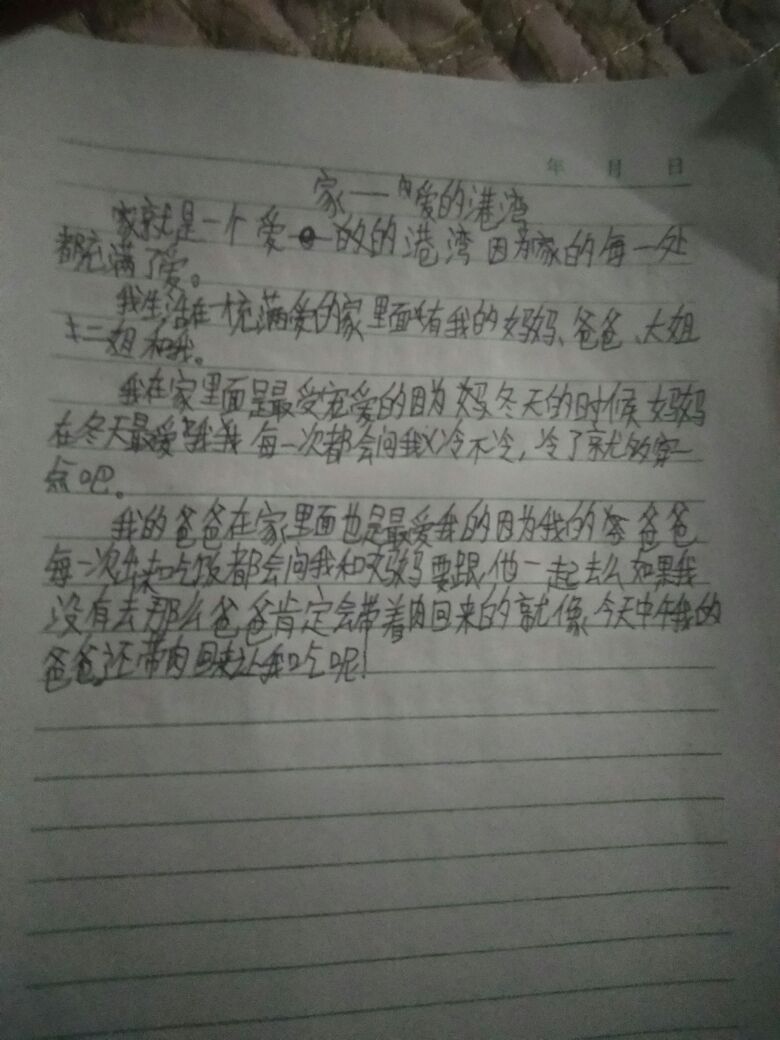 年 月 日
家——爱的港湾
家就是一个爱的港湾因为家的每一处
都充满了爱。
我生活在一充满爱的家里面有我的妈妈、爸爸、大姐
二姐和我。
我在家里面是最受宠爱的因为妈冬天的时候妈妈
在冬天最爱我每一次都会问我冷不冷,冷了就多穿一
点吧。
我的爸爸在家里面也是最爱我的因为我的爸爸
每一次出来吃饭都会问我和妈妈要跟他一起去么如果我
没有去那么爸爸肯定会带着肉回来的就像今天中午我的
爸爸还带肉回来让我吃呢!